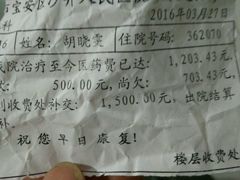 市宝安区沙井人民医院
科 2016年03月27日
姓名: 胡晓雯 住院号码: 362070
医院治疗至今医药费已达: 1,203.43元
款: 500.00元, 尚欠: 703.43元
到收费处补交: 1,500.00元, 出院结算
祝您早日康复!
楼层收费处